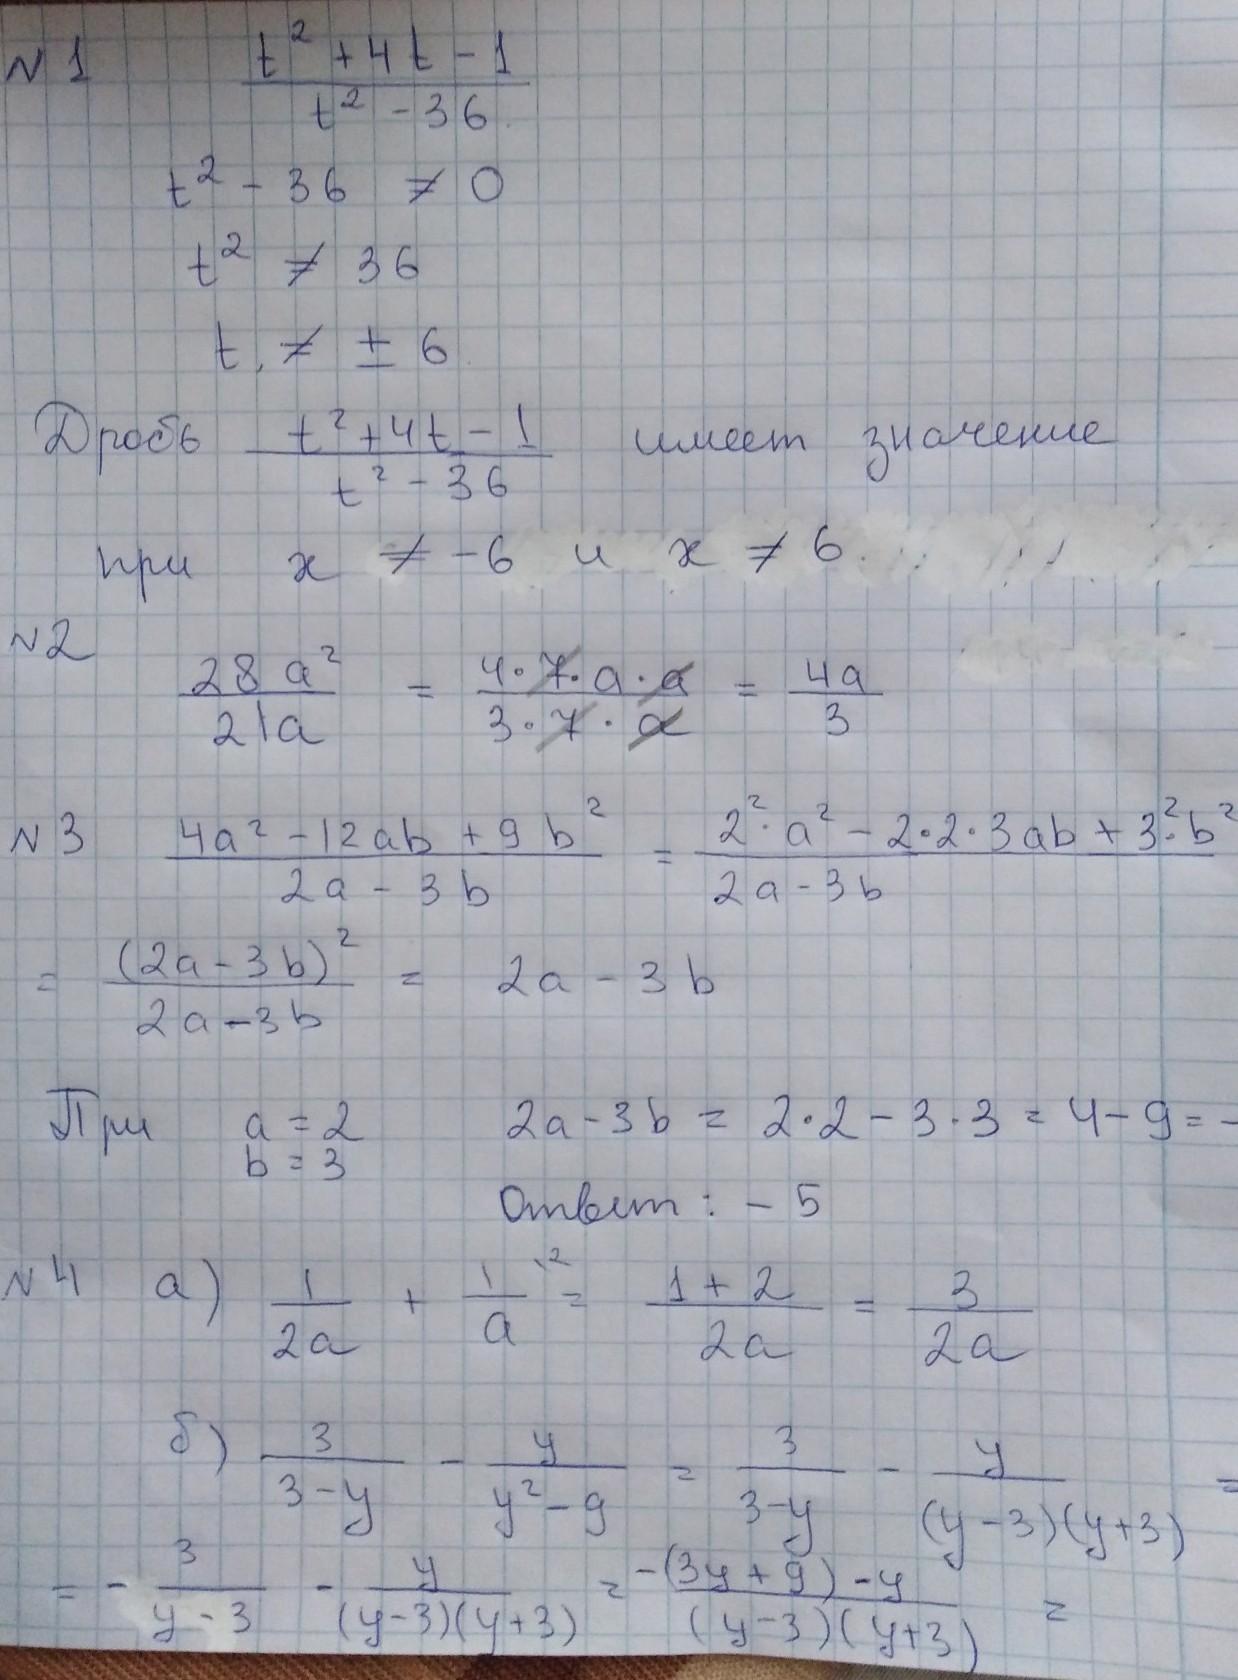 №1 (t² + 4t - 1)/(t² - 36)
t² - 36 ≠ 0
t² ≠ 36
t ≠ ± 6
Дробь (t² + 4t - 1)/(t² - 36) имеет значение
при x ≠ -6 и x ≠ 6.
№2 28a²/21a = 4·7·a·a/3·7·a = 4a/3
№3 (4a² - 12ab + 9b²)/(2a - 3b) = (2²·a² - 2·2·3ab + 3²·b²)/(2a - 3b)
= (2a - 3b)²/(2a - 3b) = 2a - 3b
При a = 2 2a - 3b = 2·2 - 3·3 = 4 - 9 = -
b = 3
Ответ: - 5
№4 а) 1/2a + 1/a \2 = (1 + 2)/2a = 3/2a
б) 3/(3 - y) - y/(y² - 9) = 3/(3 - y) - y/((y - 3)(y + 3)) =
= - 3/(y - 3) - y/((y - 3)(y + 3)) = (-(3y + 9) - y)/((y - 3)(y + 3)) =